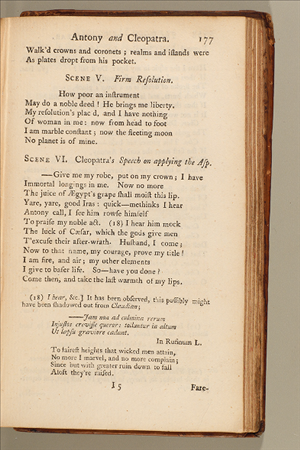 Antony and Cleopatra. 177
Walk'd crowns and coronets; realms and iſlands were
As plates dropt from his pocket.
SCENE V. Firm Reſolution.
How poor an inſtrument
May do a noble deed! He brings me liberty.
My reſolution's plac'd, and I have nothing
Of woman in me: now from head to foot
I am marble conſtant; now the fleeting moon
No planet is of mine.
SCENE VI. Cleopatra's Speech on applying the Aſp.
—Give me my robe, put on my crown; I have
Immortal longings in me. Now no more
The juice of Ægypt's grape ſhall moiſt this lip.
Yare, yare, good Iras: quick—methinks I hear
Antony call, I ſee him rowſe himſelf
To praiſe my noble act. (18) I hear him mock
The luck of Cæſar, which the gods give men
T'excuſe their after-wrath. Huſband, I come;
Now to that name, my courage, prove my title!
I am fire, and air; my other elements
I give to baſer life. So—have you done?
Come then, and take the laſt warmth of my lips.
(18) I hear, &c.] It has been obſerved, this poſſibly might
have been ſhadowed out from Claudian;
—Jam non ad culmina rerum
Injuſtos creviſſe queror: tolluntur in altum
Ut lapſu graviore cadant.
In Rufinum L.
To faireſt heights that wicked men attain,
No more I marvel, and no more complain;
Since but with greater ruin down to fall
Aloft they're raiſed.
I 5 Fare-